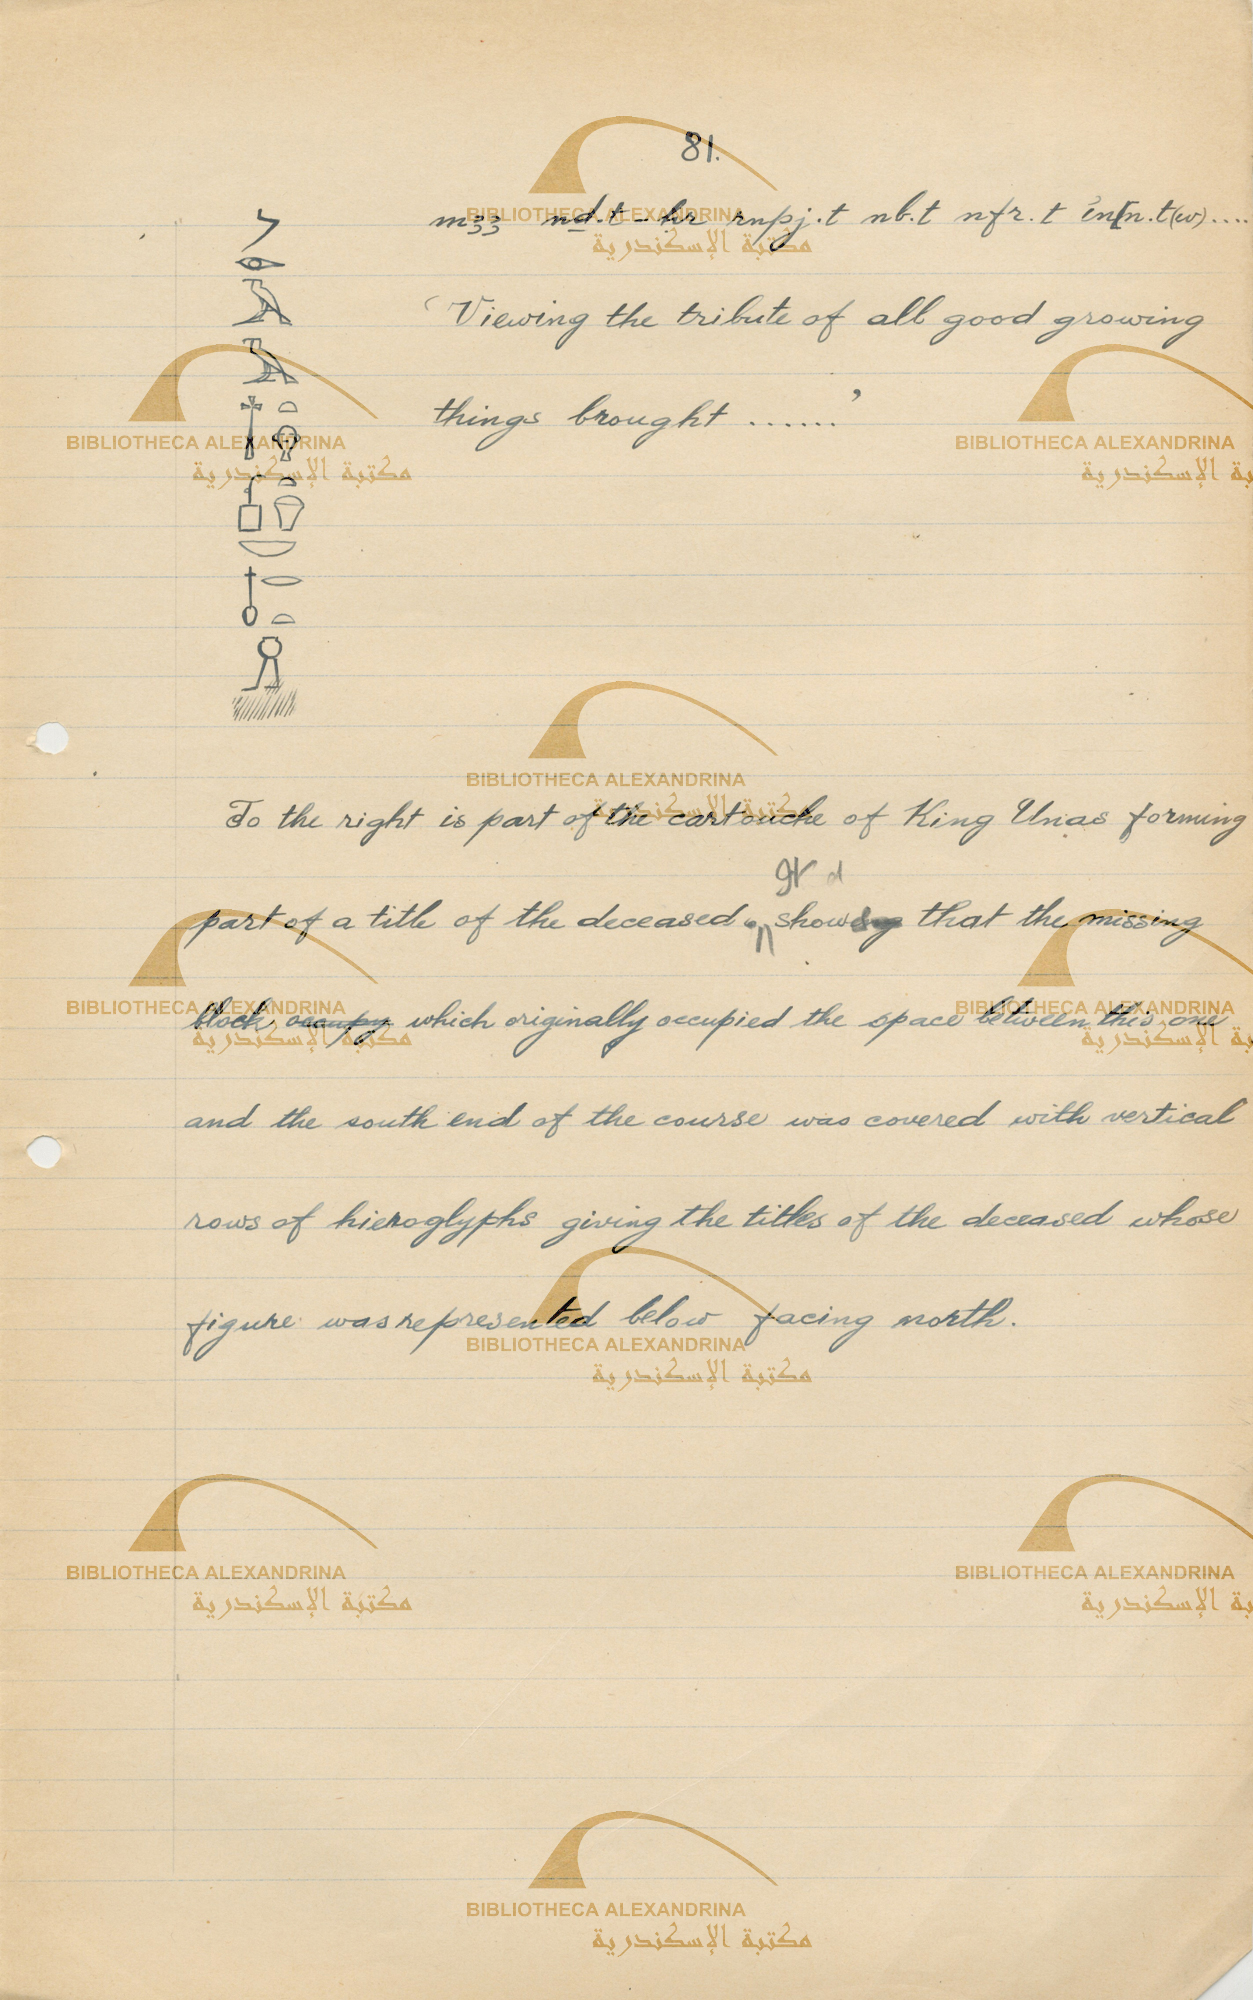 81.
m33 nḏ.t-ḥr rnpj.t nb.t nfr.t in[n.t(w)....
‘Viewing the tribute of all good growing
things brought ......’
To the right is part of the cartouche of King Unas forming
part of a title of the deceased. It showed that the missing
block occupy which originally occupied the space between this one
and the south end of the course was covered with vertical
rows of hieroglyphs giving the titles of the deceased whose
figure was represented below facing north.
BIBLIOTHECA ALEXANDRINA
مكتبة الإسكندرية